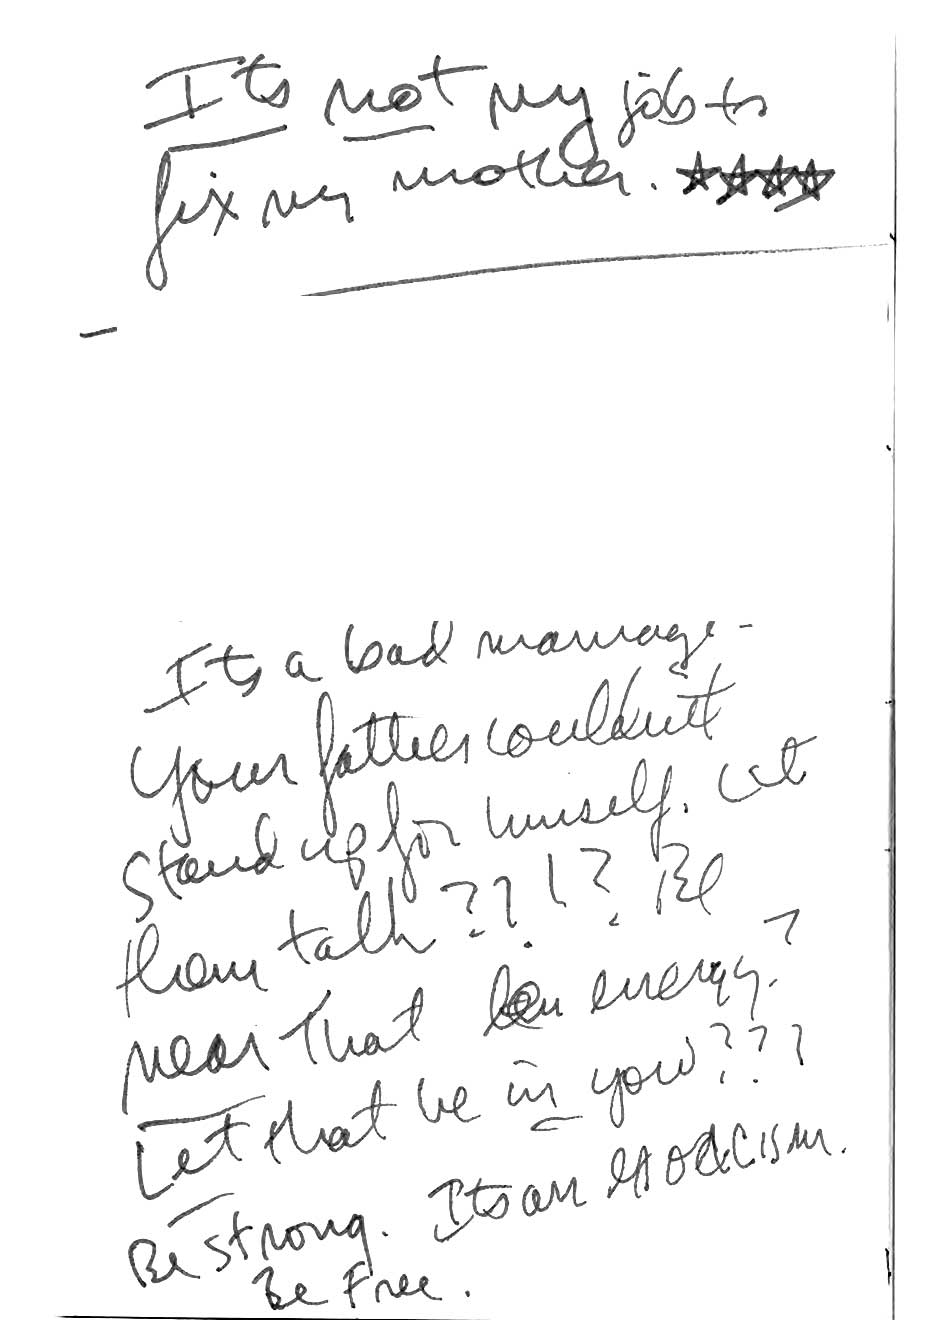 Its not my job to
fix my mother. ☆☆☆☆
Its a bad marriage -
Your father couldn't
stand up for himself. Let
them talk ? ? ! ? Be
near that energy?
Let that be in you? ? ?
Be strong. Its an exorcism.
Be Free.